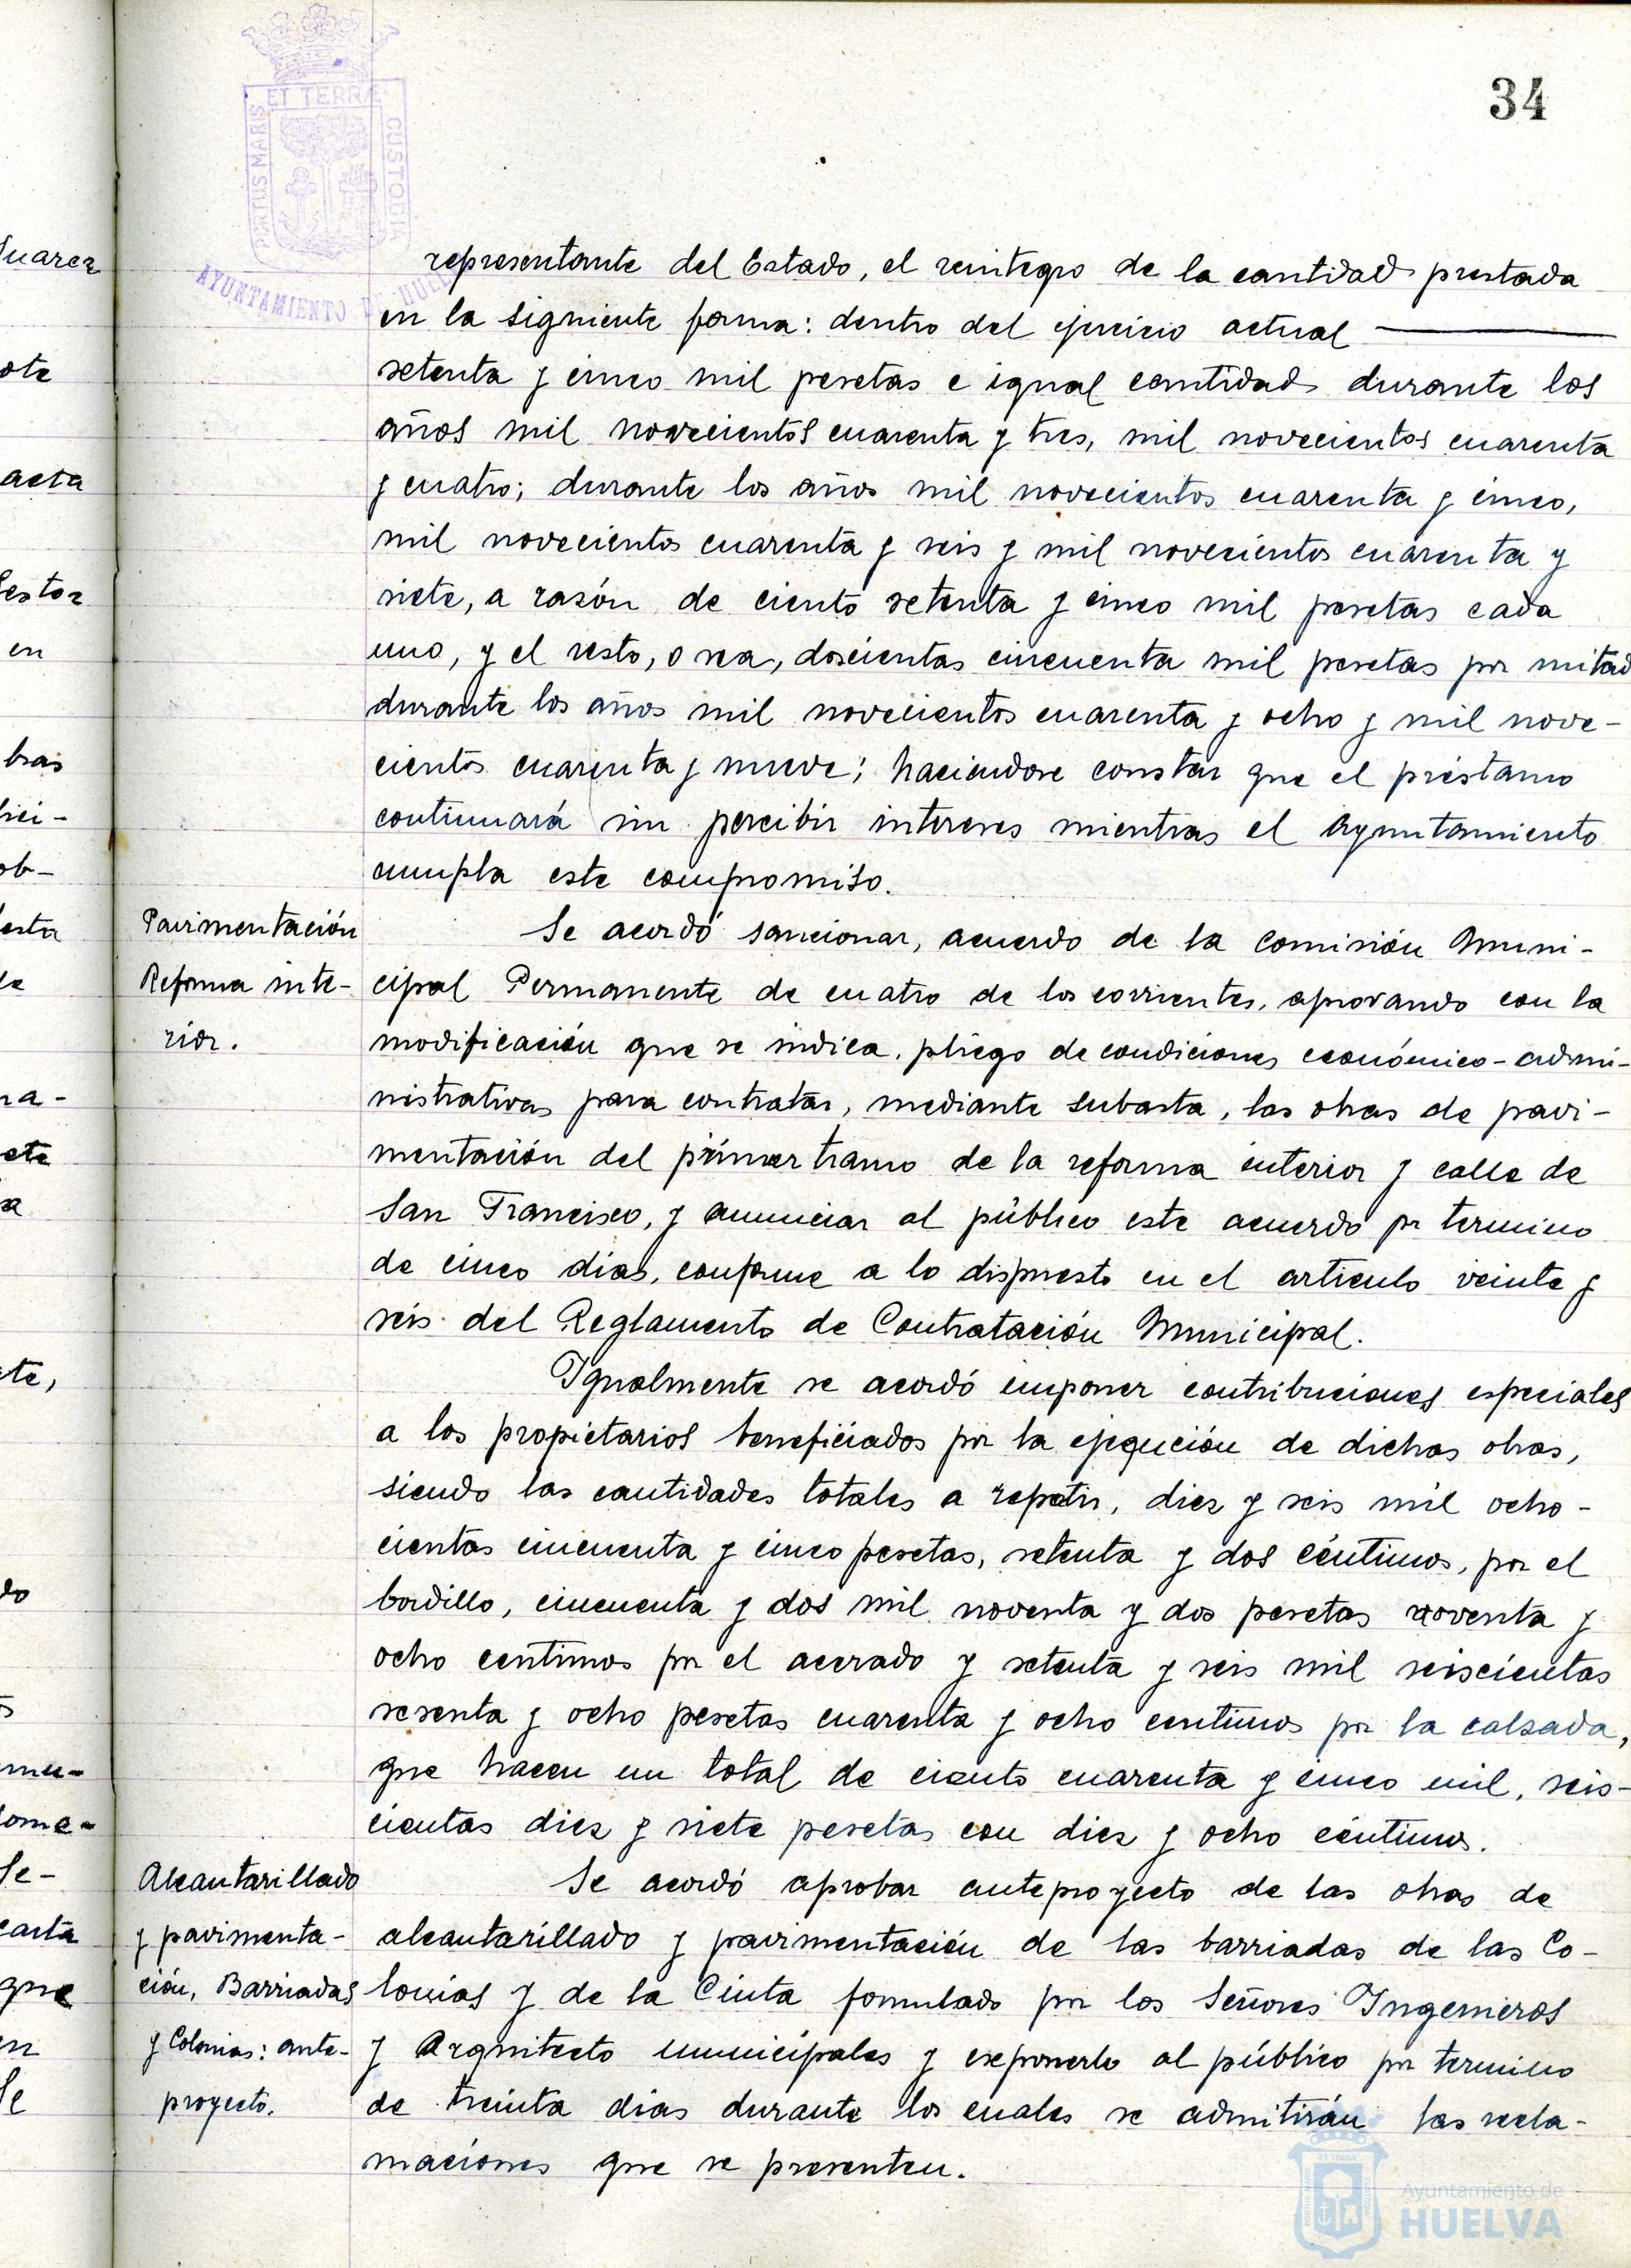 34
PORTUS MARIS ET TERRÆ CUSTODIA
AYUNTAMIENTO DE HUELVA
representante del Estado, el reintegro de la cantidad prestada
en la siguiente forma: dentro del ejercicio actual
setenta y cinco mil pesetas e igual cantidad durante los
años mil novecientos cuarenta y tres, mil novecientos cuarenta
y cuatro; durante los años mil novecientos cuarenta y cinco,
mil novecientos cuarenta y seis y mil novecientos cuarenta y
siete, a razón de ciento setenta y cinco mil pesetas cada
uno, y el resto, o sea, doscientas cincuenta mil pesetas por mitad
durante los años mil novecientos cuarenta y ocho y mil nove-
cientos cuarenta y nueve; haciendose constar que el préstamo
continuará sin percibir intereses mientras el Ayuntamiento
cumpla este compromiso.
Pavimentación
Reforma inte-
rior.
Se acordó sancionar, acuerdo de la Comisión Muni-
cipal Permanente de cuatro de los corrientes, aprovando con la
modificación que se indica, pliego de condiciones económico-admi-
nistrativas para contratar, mediante subasta, las obras de pavi-
mentación del primer tramo de la reforma interior y calle de
San Francisco, y anunciar al público este acuerdo por termino
de cinco dias, conforme a lo dispuesto en el articulo veinte y
seis del Reglamento de Contratación Municipal.
Igualmente se acordó imponer contribuciones especiales
a los propietarios beneficiados por la ejecución de dichas obras,
siendo las cantidades totales a repetir, diez y seis mil ocho-
cientas cincuenta y cinco pesetas, setenta y dos céntimos, por el
bordillo, cincuenta y dos mil noventa y dos pesetas noventa y
ocho centimos por el acerado y setenta y seis mil seiscientas
sesenta y ocho pesetas cuarenta y ocho centimos por la calzada,
que hacen un total de ciento cuarenta y cinco mil, seis-
cientas diez y siete pesetas con diez y ocho céntimos.
Alcantarillado
y pavimenta-
ción, Barriadas
y Colonias: ante-
proyecto.
Se acordó aprobar anteproyecto de las obras de
alcantarillado y pavimentación de las barriadas de las Co-
lonias y de la Cinta fomulado por los Señores Ingenieros
y Arquitecto municipales y exponerlo al público por termino
de treinta dias durante los cuales se admitirán las recla-
maciones que se presenten.
Ayuntamiento de
HUELVA